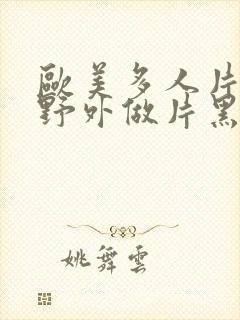 歐美多人片
野外做片黑
姚舞雲